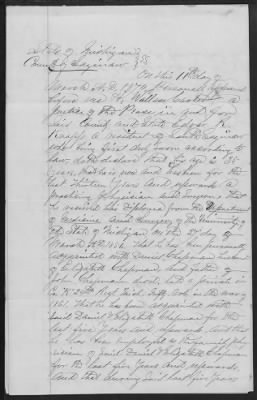 State of Michigan
County of Saginaw } SS
On this 11th day of
March A.D. 1879 Personally appeared
before me Wallace a
Justice of the Peace in and for
said County and State
a resident of Saginaw
who being first duly sworn according to
law doth declare that his age is 38
years, that he is now and has been for the
last thirteen years and upwards a
practicing Physician and Surgeon that
he received his Diploma from the Department
of Medicine and Surgery of the University
of the State of Michigan on the 27 day of
March A.D. 1866, that he has been personally
acquainted with Daniel Chapman husband
of Elizabeth Chapman and father of
John Chapman, late a private in
Co. Regt. in the war of
1861. That he has been acquainted with
said Daniel & Elizabeth Chapman for the
last five years and upwards. And that
he has been employed as the family Phys-
ician of said Daniel & Elizabeth Chapman
for the last five years and upwards.
And that during said last five years